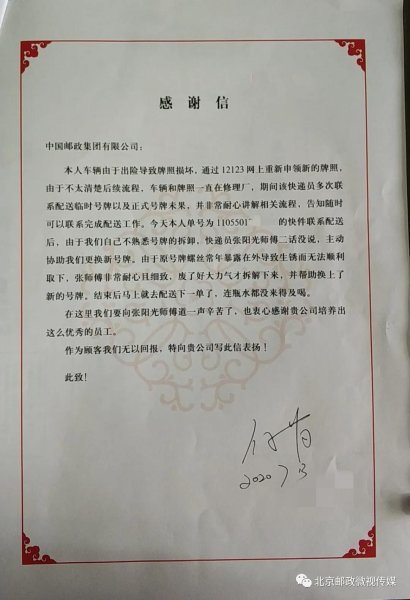 感谢信
中国邮政集团有限公司：
本人车辆由于出险导致牌照损坏，通过12123网上重新申领新的牌照，
由于不太清楚后续流程，车辆和牌照一直在修理厂，期间该快递员多次联
系配送临时号牌以及正式号牌未果，并非常耐心讲解相关流程，告知随时
可以联系完成配送工作。今天本人单号为1105501 的快件联系配送
后，由于我们自己不熟悉号牌的拆卸，快递员张阳光师傅二话没说，主动
协助我们更换新号牌。由于原号牌螺丝常年暴露在外导致生锈而无法顺利
取下，张师傅非常耐心且细致，废了好大力气才拆解下来，并帮助换上了
新的号牌，结束后马上就去配送下一单了，连瓶水都没来得及喝。
在这里我们要向张阳光师傅道一声辛苦了，也衷心感谢贵公司培养出
这么优秀的员工。
作为顾客我们无以回报，特向贵公司写此信表扬！
此致！
2020
北京邮政微视传媒